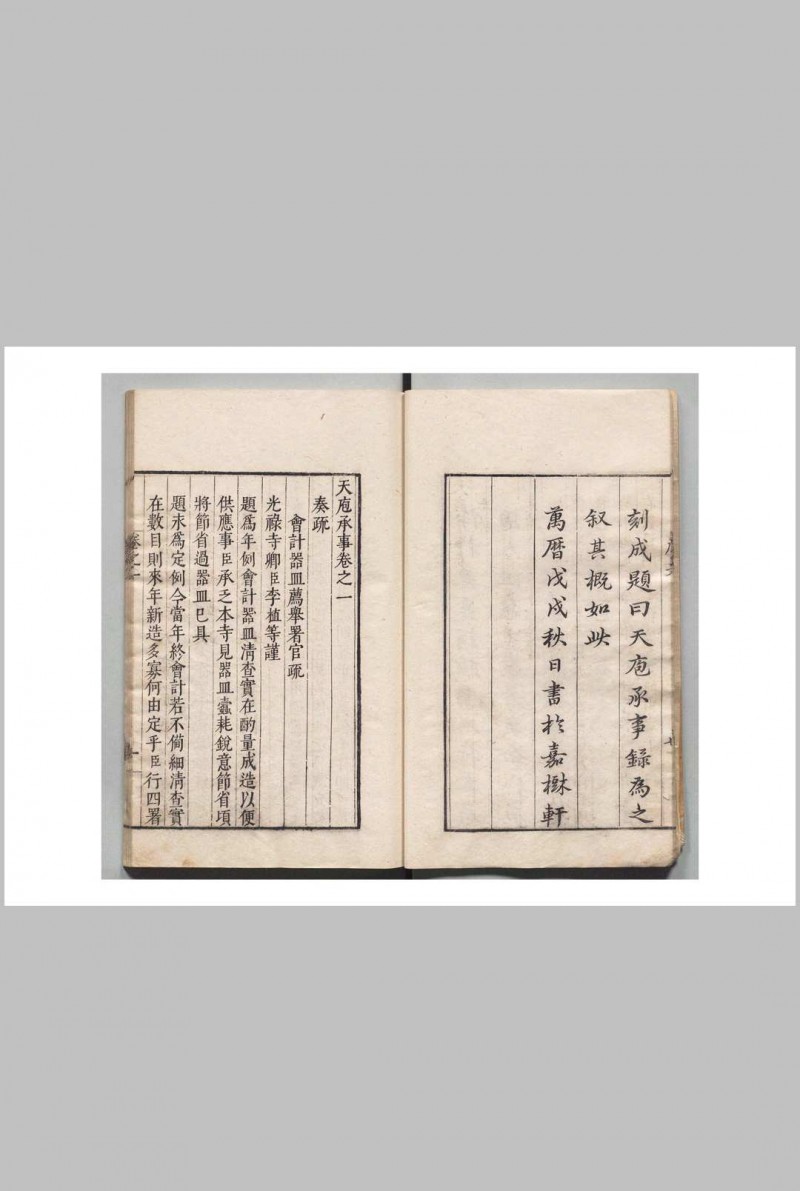 刻成題曰天庖承事録為之
叙其概如此
萬曆戊戌秋日書於嘉楙軒
天庖承事卷之一
奏疏
會計器皿薦舉署官疏
光祿寺卿臣李植等謹
題爲年例會計器皿清查實在酌量成造以便
供應事臣承乏本寺見器皿蠹耗銳意節省項
將節省過器皿已具
題未爲定例今當年終會計若不備細清查實
在數目則來年新造多寡何由定乎臣行四署
卷之一
一